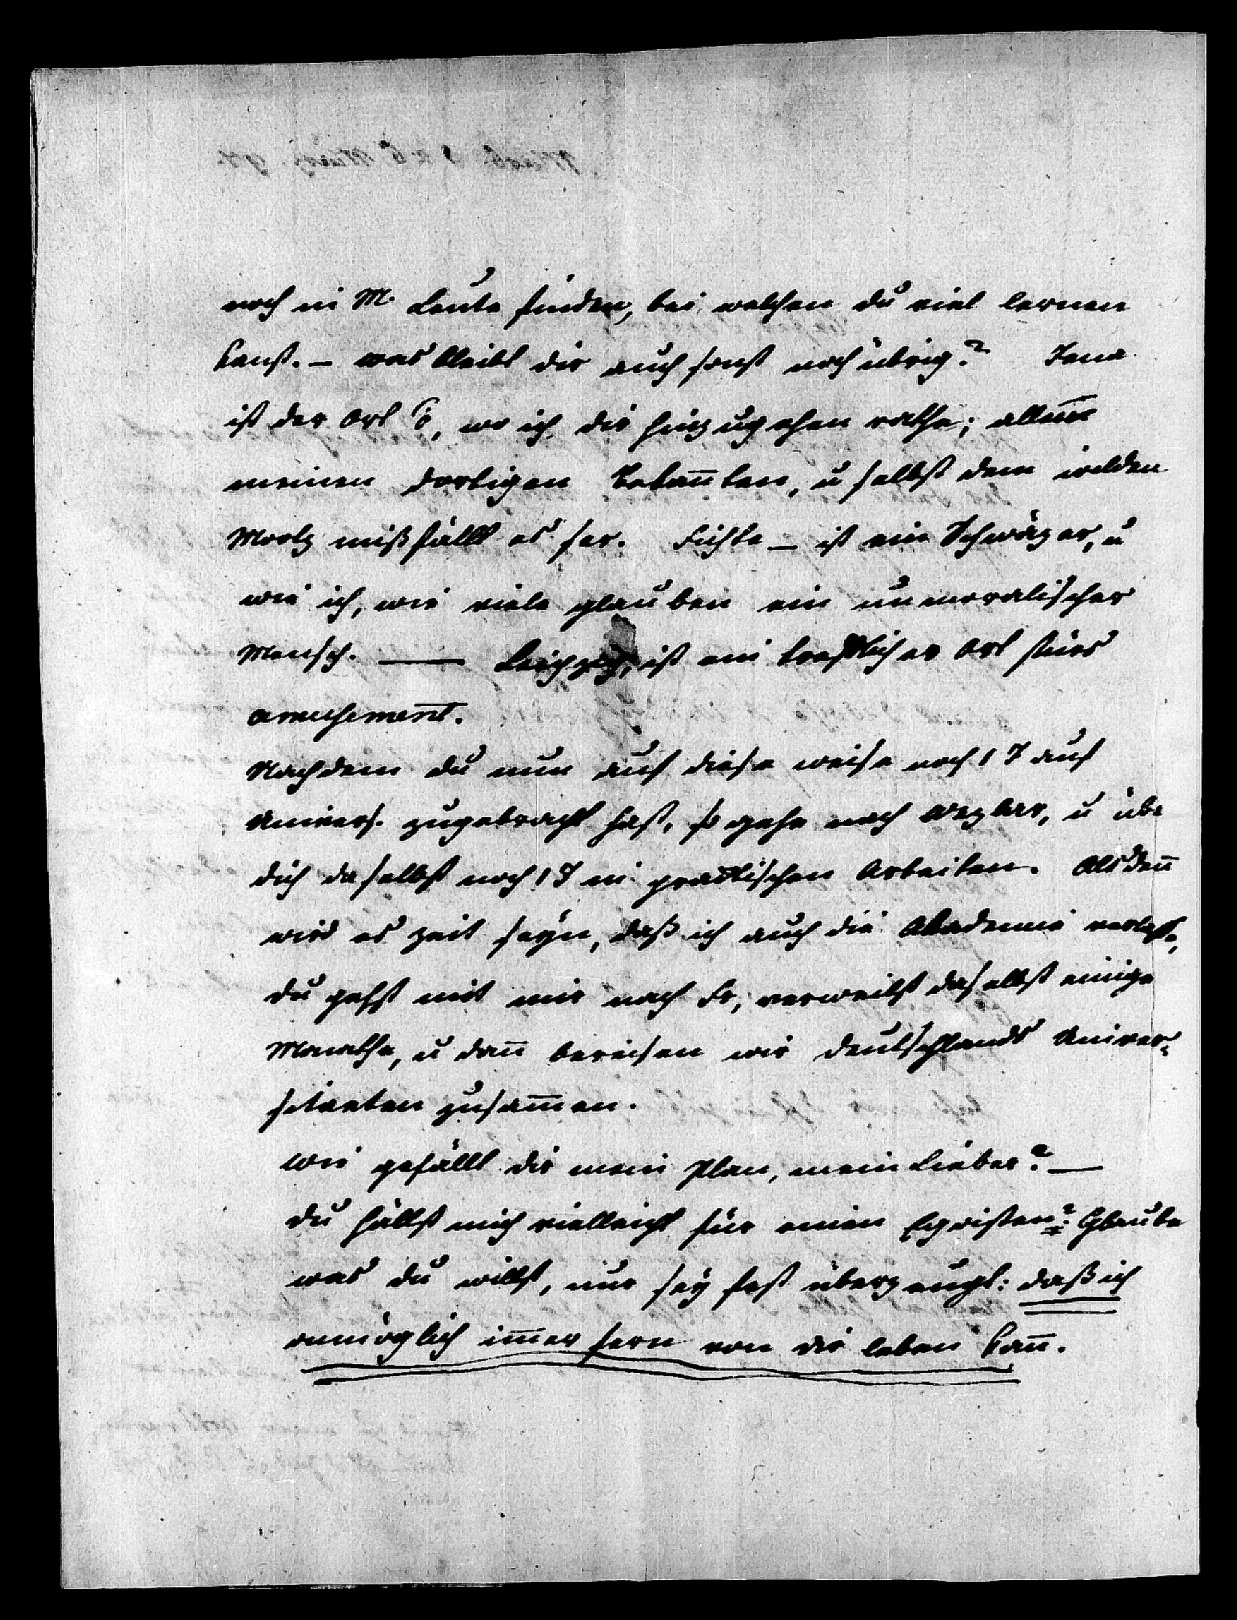 noch in M. Leute finden, bei welchen du viel lernen
kanst. – was bleibt dir auch sonst noch übrig? Jena
ist der Ort, wo ich dir hinzugehen rathe; allein
meinen dortigen Bekañten, u selbst dem wilden
mißfällt es ser. Fichte – ist ein Schwäzer, u
wie ich, wie viele glauben ein unmoralischer
Mensch. — Leipzig, ist ein treflicher Ort fürs
amusement.
Nachdem du nun auf diese weise noch 1 J auf
Univers. zugebracht hast, so gehe nach Wezlar, u übe
dich daselbst noch 1 J in practischen Arbeiten. Alsdeñ
wird es zeit seyn, daß ich auch die Akademie verlasse,
du gehst mit mir nach Fr, verweilst daselbst einige
Monathe, u dañ bereisen wir deutschlands Univer-
sitaeten zusam̄en.
Wie gefällt dir mein Plan, mein Lieber? —
du hällst mich vielleicht für einen Egoisten? Glaube
was du willst, nur sey fest überzeugt: daß ich
unmöglich im̄er fern von dir leben kañ.